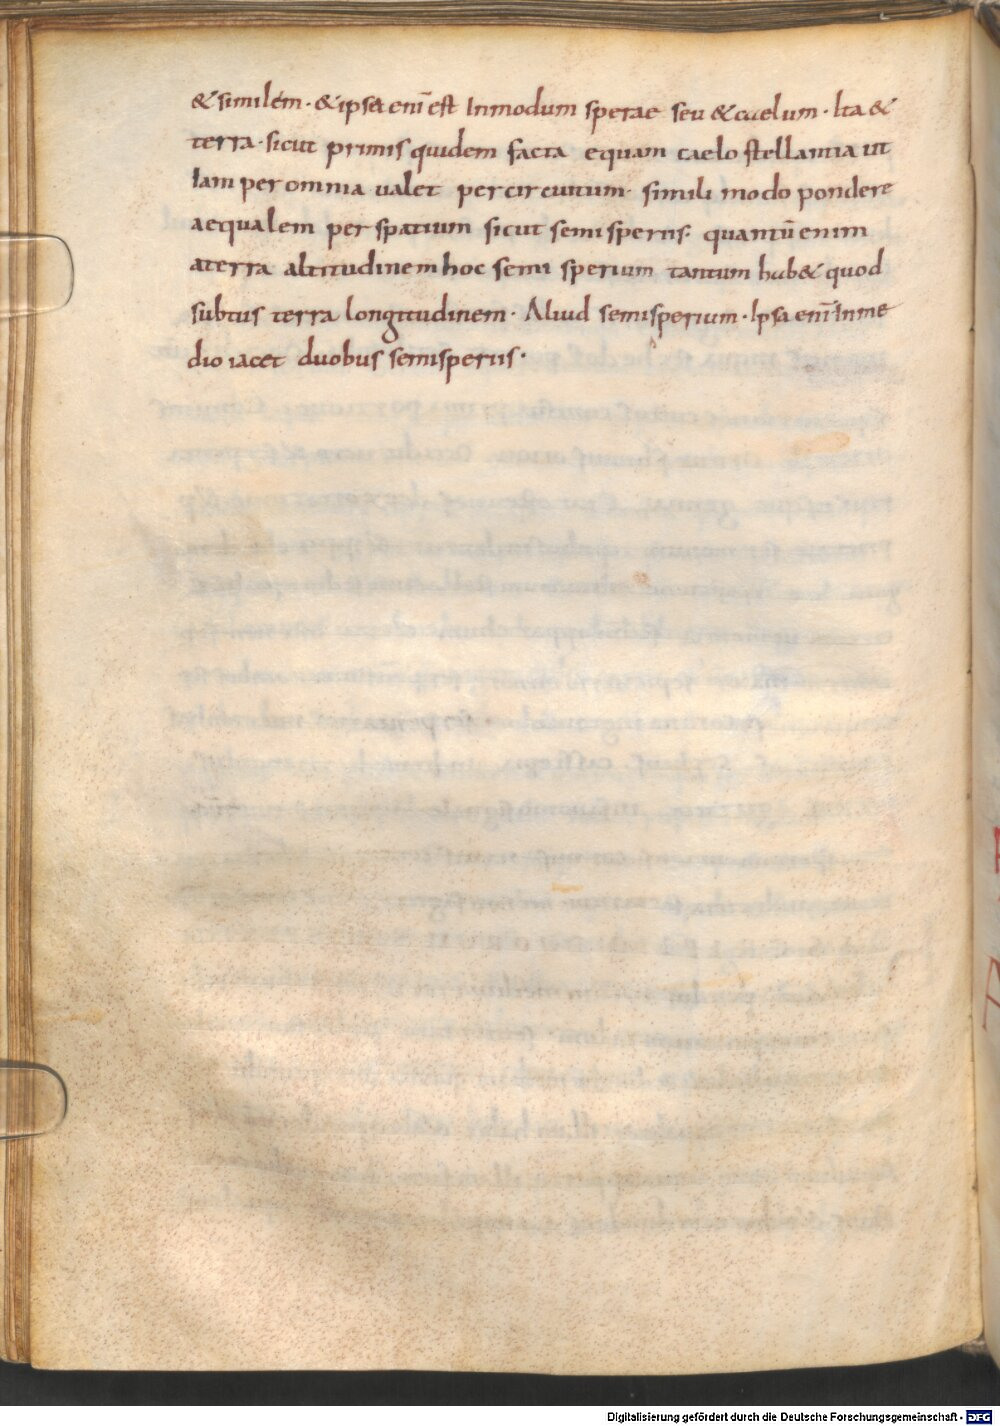 & similem · & ipsa eni̅ est Inmodum sperae seu & caelum · Ita &
terra · sicut primis quidem facta equam caelo stellantia ut
Iam per omnia ualet per circuitum · simili modo pondere
aequalem per spatium sicut semisperiis · quantu̅ enim
aterra altitudinem hoc semi sperium tantum hab& quod
subtus terra longitudinem · Aliud semisperium · Ipsa eni̅ Inme
dio iacet duobus semisperiis ·
Digitalisierung gefördert durch die Deutsche Forschungsgemeinschaft - DFG